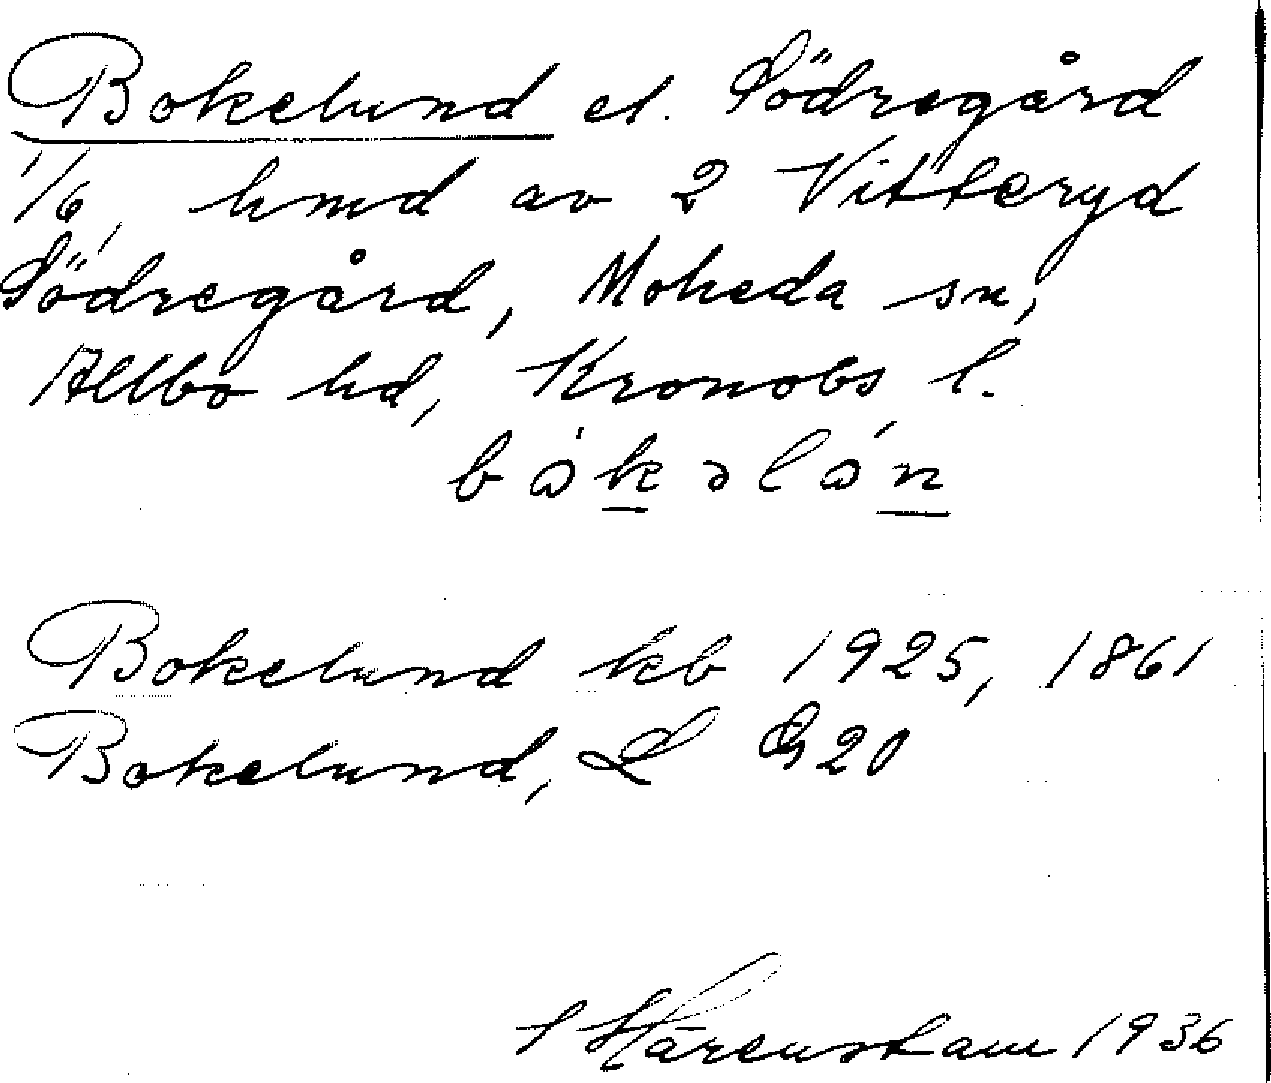 Bokelund el. Södregård
1/6, hmd av 2 Vitteryd
Södregård, Moheda sn,
Allbo hd, Kronobs l.
bòkəlón
Bokelund kb 1925, 1861
Bokelund, L G 20
S Härenstam 1936